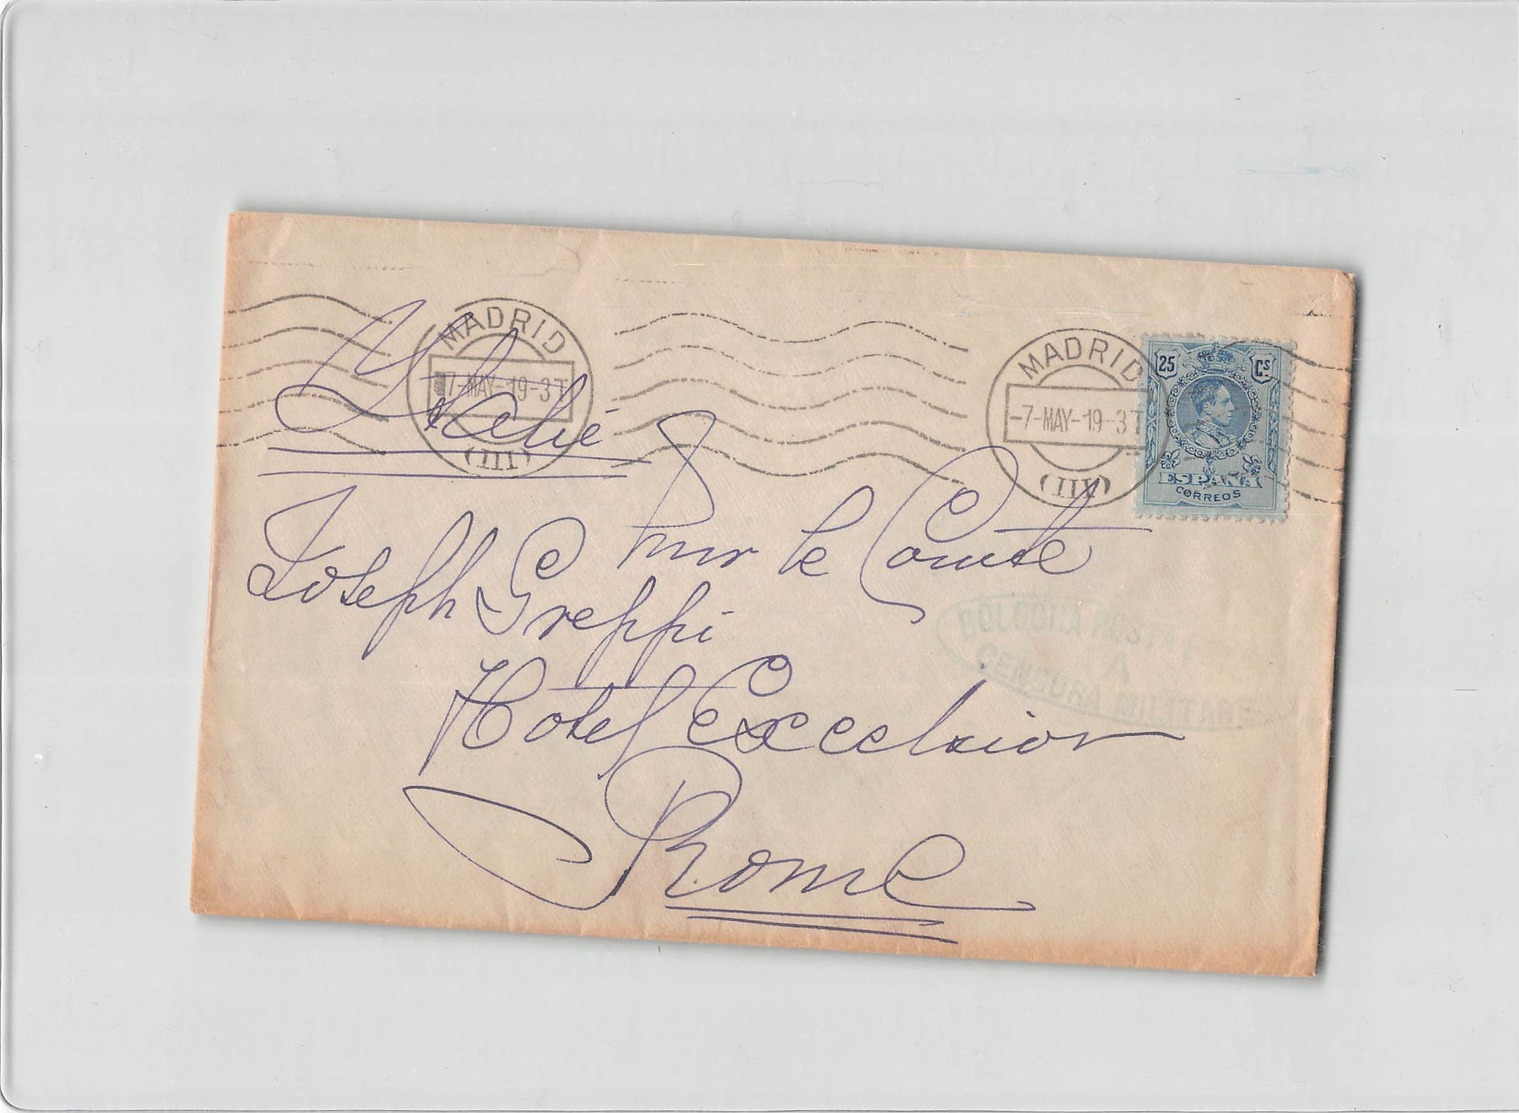 MADRID
7-MAY-19-3T
(III)
MADRID
-7-MAY-19-3T
(III)
25 Cs
ESPAÑA
CORREOS
Italie
Pour le Comte
Joseph Greppi
Hotel Excelsior
Rome
BOLOGNA POSTA E
A
CENSURA MILITARE